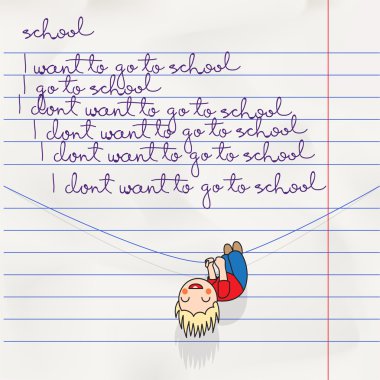 school
I want to go to school
I go to school
I dont want to go to school
I dont want to go to school
I dont want to go to school
I dont want to go to school